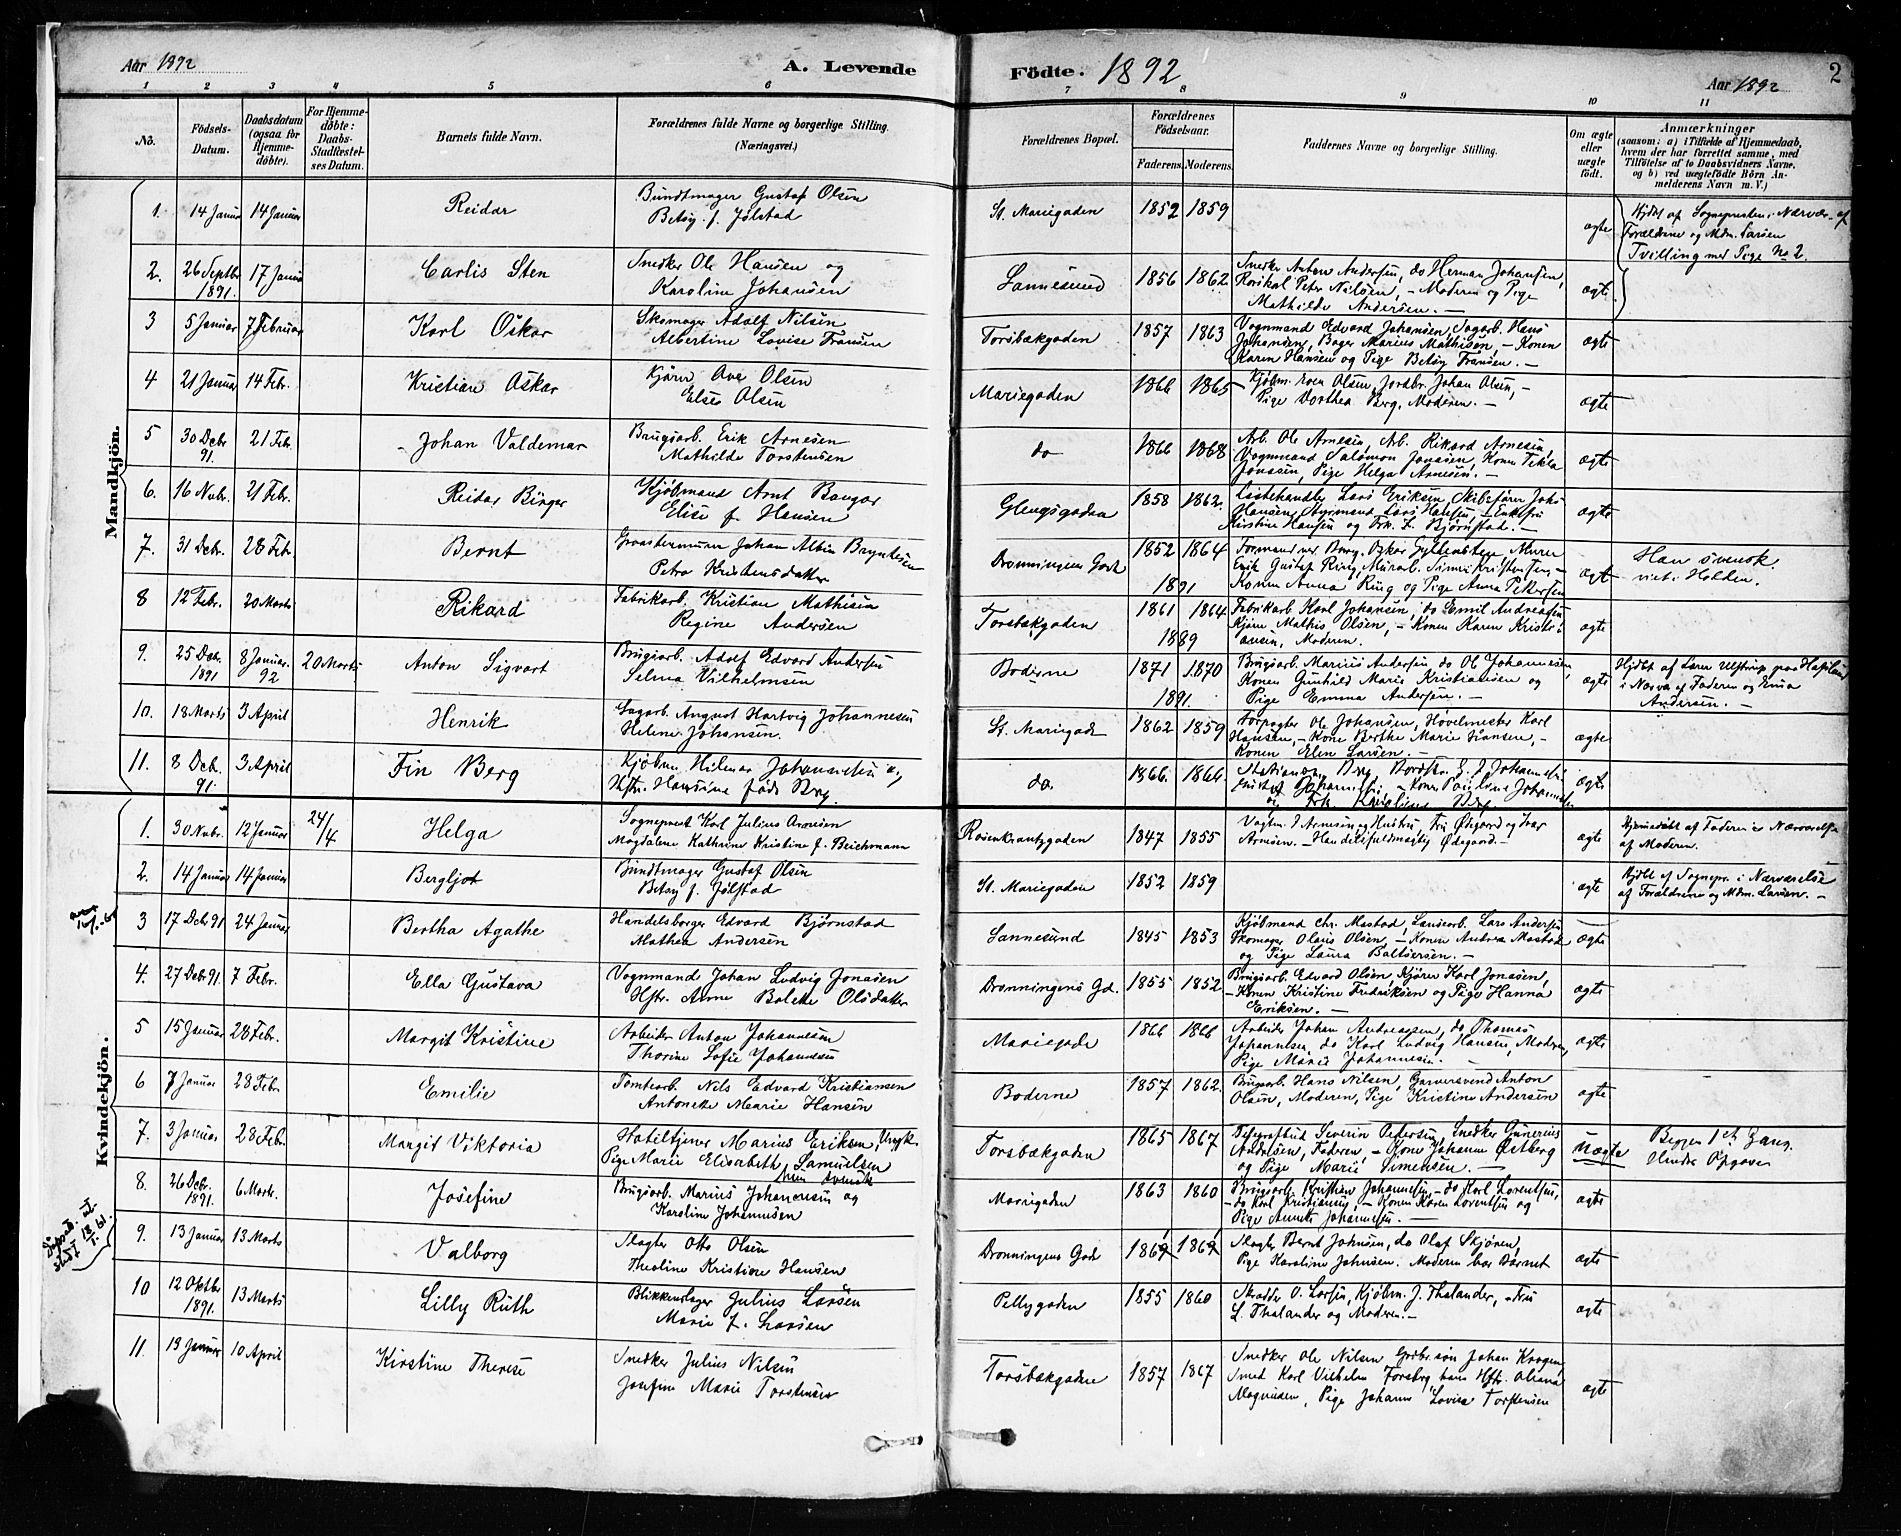 Aar 1892
A. Levende
Födte. 1892
Aar 1892
2
1 2 3 4 5 6 7 8 9 10 11
No.
Födsels-Datum.
Daabsdatum (ogsaa for Hjemmedöbte).
For Hjemmedöbte: Daabs-Stadfæstelses Datum.
Barnets fulde Navn.
Forældrenes fulde Navne og borgerlige Stilling. (Næringsvei.)
Forældrenes Bopæl.
Forældrenes Födselsaar.
Faderens. Moderens.
Faddernes Navne og borgerlige Stilling.
Om ægte eller uægte födt.
Anmærkninger
(saasom: a) i Tilfælde af Hjemmedaab, hvem der har forrettet samme, med Tilföielse af to Daabsvidners Navne, og b) ved uægtefödte Börn Anmelderens Navn m. V.)
Mandkjön.
1. 14 Januar 14 Januar Reidar
Bundtmager Gustaf Olsen
Betsy f. Jølstad
St. Mariegaden 1852 1859 ægte
Hjdbt af Sognepresten i Nærvær. af
Forældrene og Mdm. Larsen
Tvilling med Pige No 2.
2. 26 Septbr 1891. 17 Januar Carlis Sten
Snedker Ole Hansen og
Karoline Johansen
Sannesund 1856 1862
Snedker Anton Andersen, do Herman Johansen,
Peter Nilsen, - Moderen og Pige
Mathilde Andersen. -
ægte
3 5 Januar 7 Februar Karl Oskar
Skomager Adolf Nilsen
Albertine Lovise Fransen
Torsbækgaden 1857 1863
Vognmand Edvard Johansen, Sagarb. Hans
Johansen, Bager Marius Mathisen, - Konen
Karen Hansen og Pige Betsy Fransen. -
ægte
4 21 Januar 14 Feb. Kristian Oskar
Kjører Ave Olsen
Else Olsen
Mariegaden 1866 1865
Kjøbm. Even Olsen, Jordbr. Johan Olsen, -
Pige Dorthea Berg, Moderen. -
ægte
5 30 Decbr 91. 21 Feb. Johan Valdemar
Brugsarb. Erik Arnesen
Mathilde Torstensen
do 1866 1868
Arb. Ole Arnesen, Arb. Rikard Arnesen,
Vognmand Salomon Jonasen, Konen Tekla
Jonasen, Pige Helga Arnesen. -
ægte
6. 16 Nvbr. 21 Feb. Reidar Birger
Kjøbmand Arnt Bangar
Elise f. Hansen
Glengsgaden 1858 1862.
Listehandler Lars Eriksen, Skibsfører Johs
Hansen, Styrmand Lars Hansen, - Enkefru
Kirstine Hansen og Frk. L. Bjørnstad. -
ægte
7. 31 Debr. 28 Feb. Bernt
Johan Albin Bryntesen
Petra Kristensdatter
Dronningens Gade 1852 1864 1891
Formand ver Borg. Oskar Gyllenstype, Murer
Erik Gustaf Ring, Murarb. Simen Kristensen, -
Konen Anna Ring og Pige Anna Petersen
ægte
Han svensk.
viet i Halden.
8 12 Febr. 20 Marts Rikard
Fabrikarb. Kristian Mathisen
Regine Andersen
Torsbækgaden 1861 1864 1889
Fabrikarb Karl Johansen, do Emil Andreasen,
Kjører Mathis Olsen, - Konen Karen Kristi-
ansen, Moderen.
ægte
9. 25 Dec. 1891 8 Januar. 92 20 Marts Anton Sigvart
Brugsarb. Adolf Edvard Andersen
Selma Vilhelmsen
Boderne 1871 1870 1891.
Brugsarb. Marius Andersen do Ole Johannesen,
Konen Gunhild Marie Kristiansen og
Pige Emma Andersen. -
ægte
Hjdbt af Lærer Ulstrup paa Hafslund
i Nærvær af Faderen og Ema
Andersen. -
10. 18 Marts 3 April Henrik
Sagarb. August Hartvig Johannesen
Helene Johansen.
St. Mariegade 1862 1859
Forpagter Ole Johansen, Høvelmester Karl
Hansen, - Kone Berthe Marie Hansen, -
Konen Elen Larsen. -
ægte
11. 8 Dcb. 91. 3 April Fin Berg
Kjøbm. Hilmar Johannesen og
Hstr. Hansine født Berg.
do. 1866. 1866
Berg,
Johannesen, - Konen Pauline Johannesen
og Frk Karoline Berg
ægte
Kvindekjön.
1. 30 Nvbr. 12 Januar 24/4 Helga
Sogneprest Karl Julius Arnesen
Magdalene Kathrine Kristine f. Beichmann
Rosenkrantzgaden 1847 1855
Vagtm. J Arnesen og Hustru Fru Ødegaard og Ivar
Arnesen. - Handelsfuldmægtig Ødegaard. -
ægte
Hjemmedøbt af Faderen i Nærværelse
af Moderen.
2. 14 Januar 14 Januar Bergljot
Bundtmager Gustaf Olsen
Betsy f. Jølstad
St. Mariegaden 1852 1859 ægte
Hjdbt af Sognepr. i Nærværelse
af Forældrene og Mdm. Larsen. -
3 17 Dcb 91 24 Januar Bertha Agathe
Handelsborger Edvard Bjørnstad
Mathea Andersen
Sannesund 1845 1853
Kjøbmand Chr. Mastad, Landarb. Lars Andersen
Skomager Olaus Olsen, - Konen Andrea Mastad
og Pige Laura Baltsersen. -
ægte
4. 27 Decbr 91. 7 Febr. Ella Gustava
Vognmand Johan Ludvig Jonasen
Hstr. Anne Bolette Olsdatter
Dronningens Gd. 1855 1852
Brugsarb. Edvard Olsen, Kjører Karl Jonasen,
- Konen Kristine Fredriksen og Pige Hanna
Eriksen. -
ægte
5 15 Januar 28 Febr. Margit Kristine
Arbeider Anton Johannesen
Thorine Sofie Johannesen
Mariegade 1866 1866
Arbeider Johan Andreassen, do Thomas
Johannesen, do Karl Ludvig Hansen, Moderen,
Pige Marie Johannesen. -
ægte
6 7 Januar 28 Febr. Emilie
Tomtearb. Nils Edvard Kristiansen
Antonette Marie Hansen
Boderne 1857 1862.
Brugsarb. Hans Nilsen, Garversvend Anton
Olsen, Moderen, Pige Kristine Andersen
ægte
7. 3 Januar 28 Feb. Margit Viktoria
Hoteltjener Marius Eriksen, Ungk.
Pige Marie Elisabeth Samuelsen
hun svensk
Torsbækgaden 1865 1867
Telegrafbud Severin Petersen, Snedker Gunerius
Andersen, Faderen, - Kone Johanne Østberg
og Pige Marie Simensen. -
uægte
Begges 1ste Gang.
Hendes Opgave
8. 26 Dcbr. 1891. 6 Marts Josefine
Brugsarb. Marius Johannesen og
Karoline Johannesen
Mariegaden 1863 1860
Brugsarb. Kristian Johannesen, - do Karl Lorentsen,
- do Karl Kristiansen, - Konen Karen Lorentsen og
Pige Annette Johannesen. -
ægte
9. 13 Januar 13 Marts Valborg
Slagter Otto Olsen
Theoline Kristine Hansen
Dronningens Gade
Slagter Bernt Johnsen, do Olaf Skjøren,
Pige Karoline Johnsen. Moderen bar Barnet
ægte
10 12 Oktbr 1891. 13 Marts Lilly Ruth
Blikkenslager Julius Larsen
Marie f. Larsen
Pellygaden 1855 1860
Skrædder O. Larsen, Kjøbm. J. Thalander, - Fru
L. Thalander og Moderen. -
ægte
11. 19 Januar 10 April Kirstine Therese
Snedker Julius Nilsen
Josefine Marie Torstensen
Torsbækgaden 1857 1867
Snedker Ole Nilsen Grdbr.søn Johan Kragen,
Smed Karl Vilhelm Forsberg hans Hstr. Oliana
Magnusen, Pige Johanne Lovise Torstensen
ægte